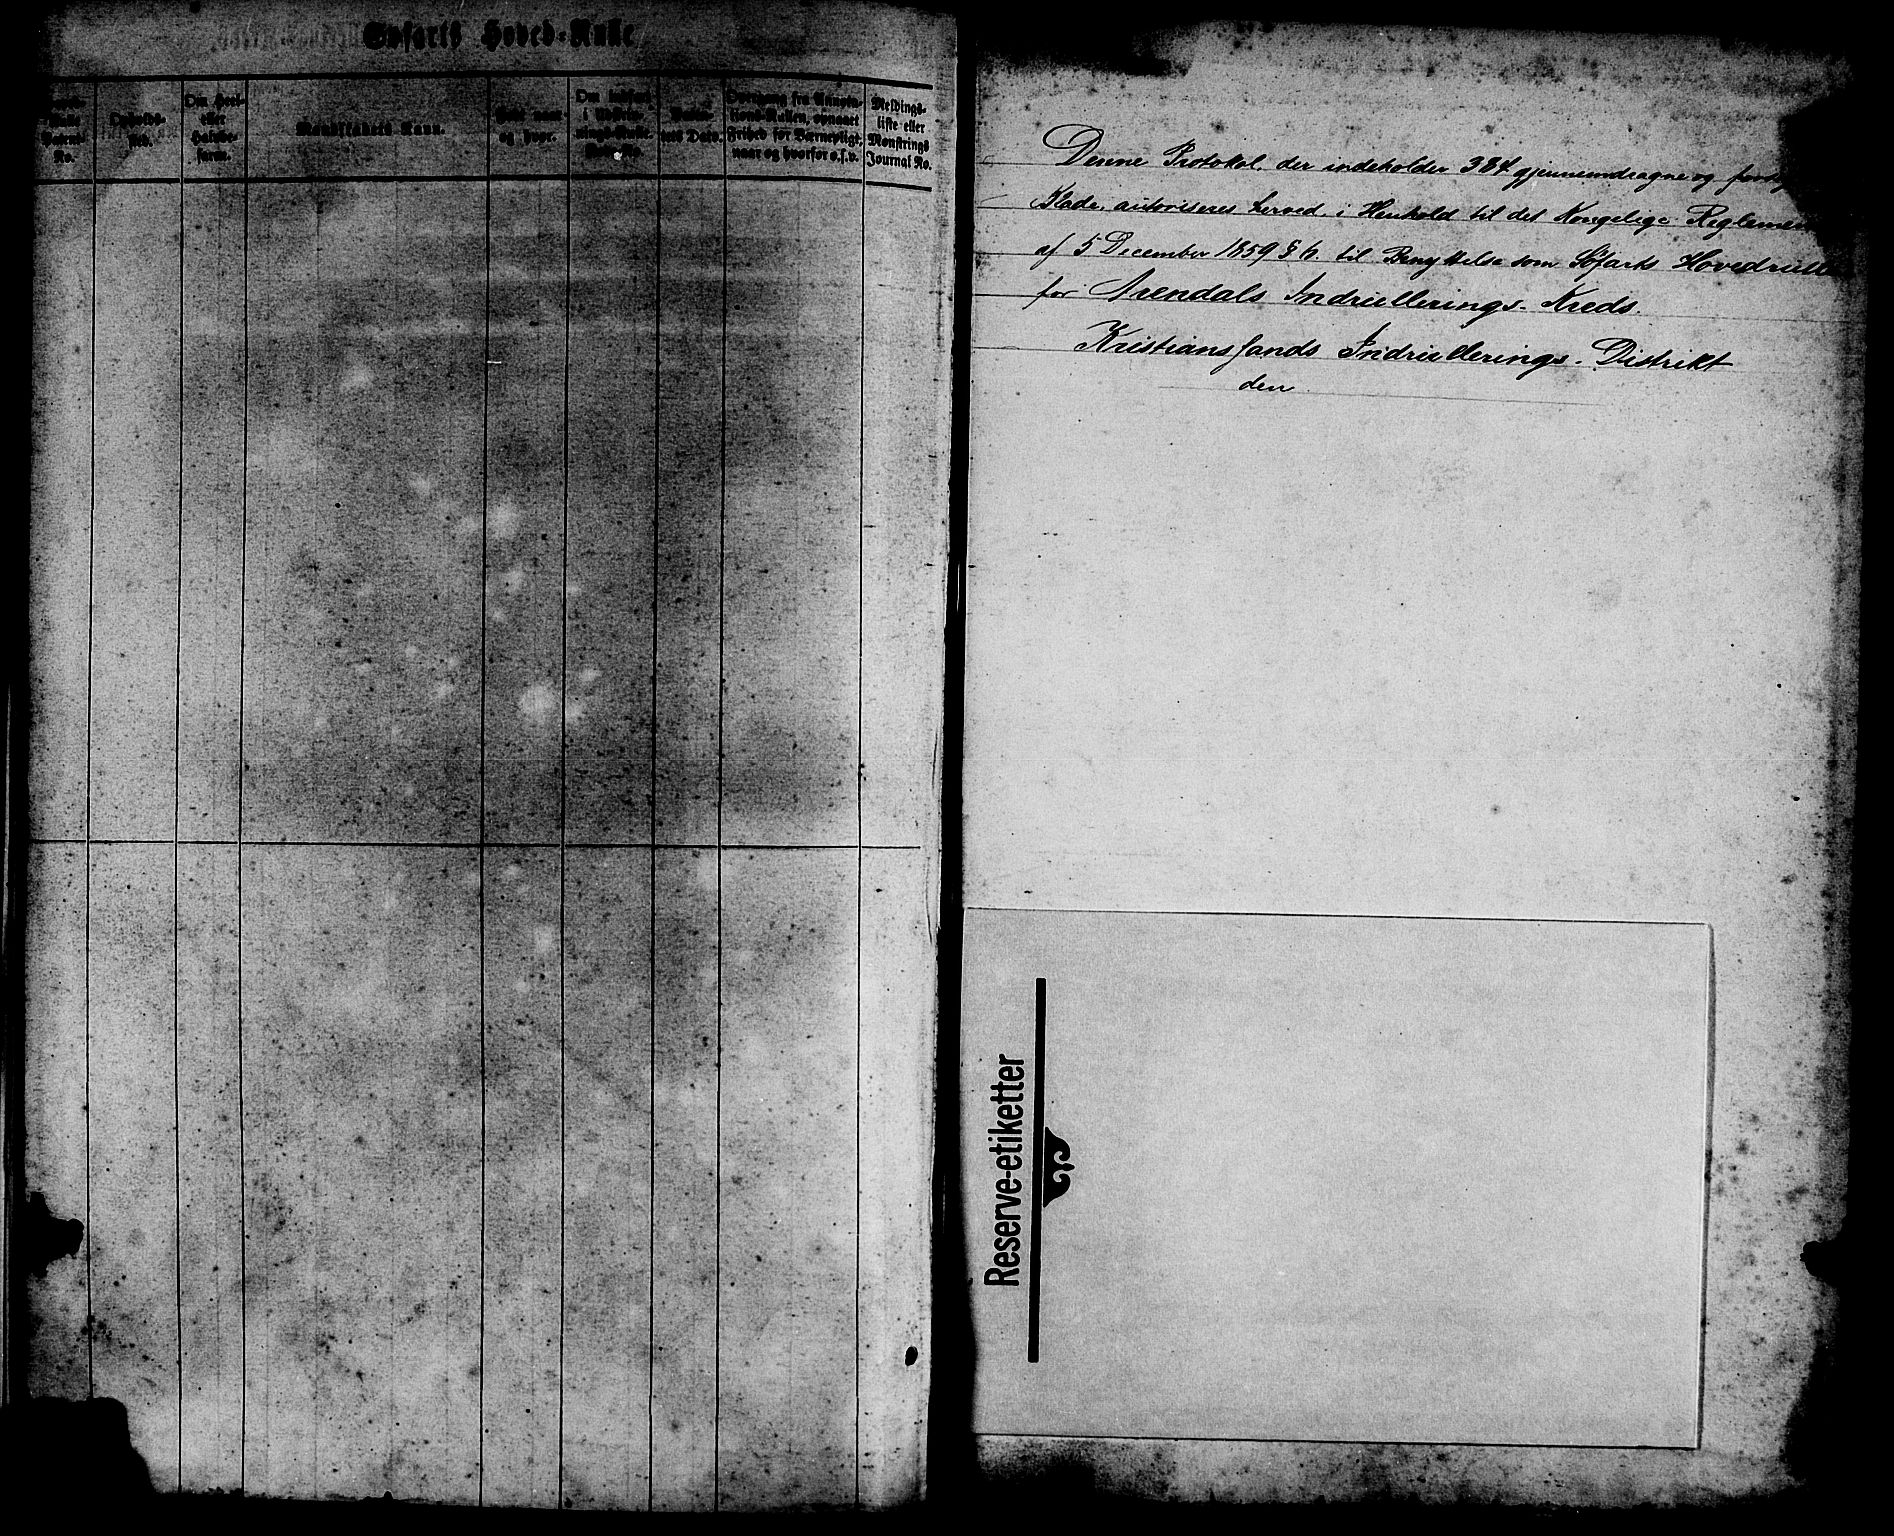 Søfarts Hoved-Rulle
Rulle
No.
Opholds-
Rd.
Om Heel-
eller
Halvbe-
faren.
Mandskabets Navn.
Født naar
og hvor.
Om indført
i Udskriv-
nings-Rulle.
No.
tets Dato.
Overgang fra Annota-
tions-Rullen, opnaaet
Frihed for Værnepligt,
naar og hvorfor o.s.v.
Meldings-
liste eller
Mønstrings
Journal No.
Denne Protokol, der indeholder 384 gjennemdragne og
Blade, autoriseres herved, i Henhold til det Kongelige Reglement
af 5 December 1859 § 6. til Benyttelse som Søfarts Hovedrulle
for Arendals Indrullerings-Kreds.
Kristianssands Indrullerings-Distrikt
den
Reserve-etiketter